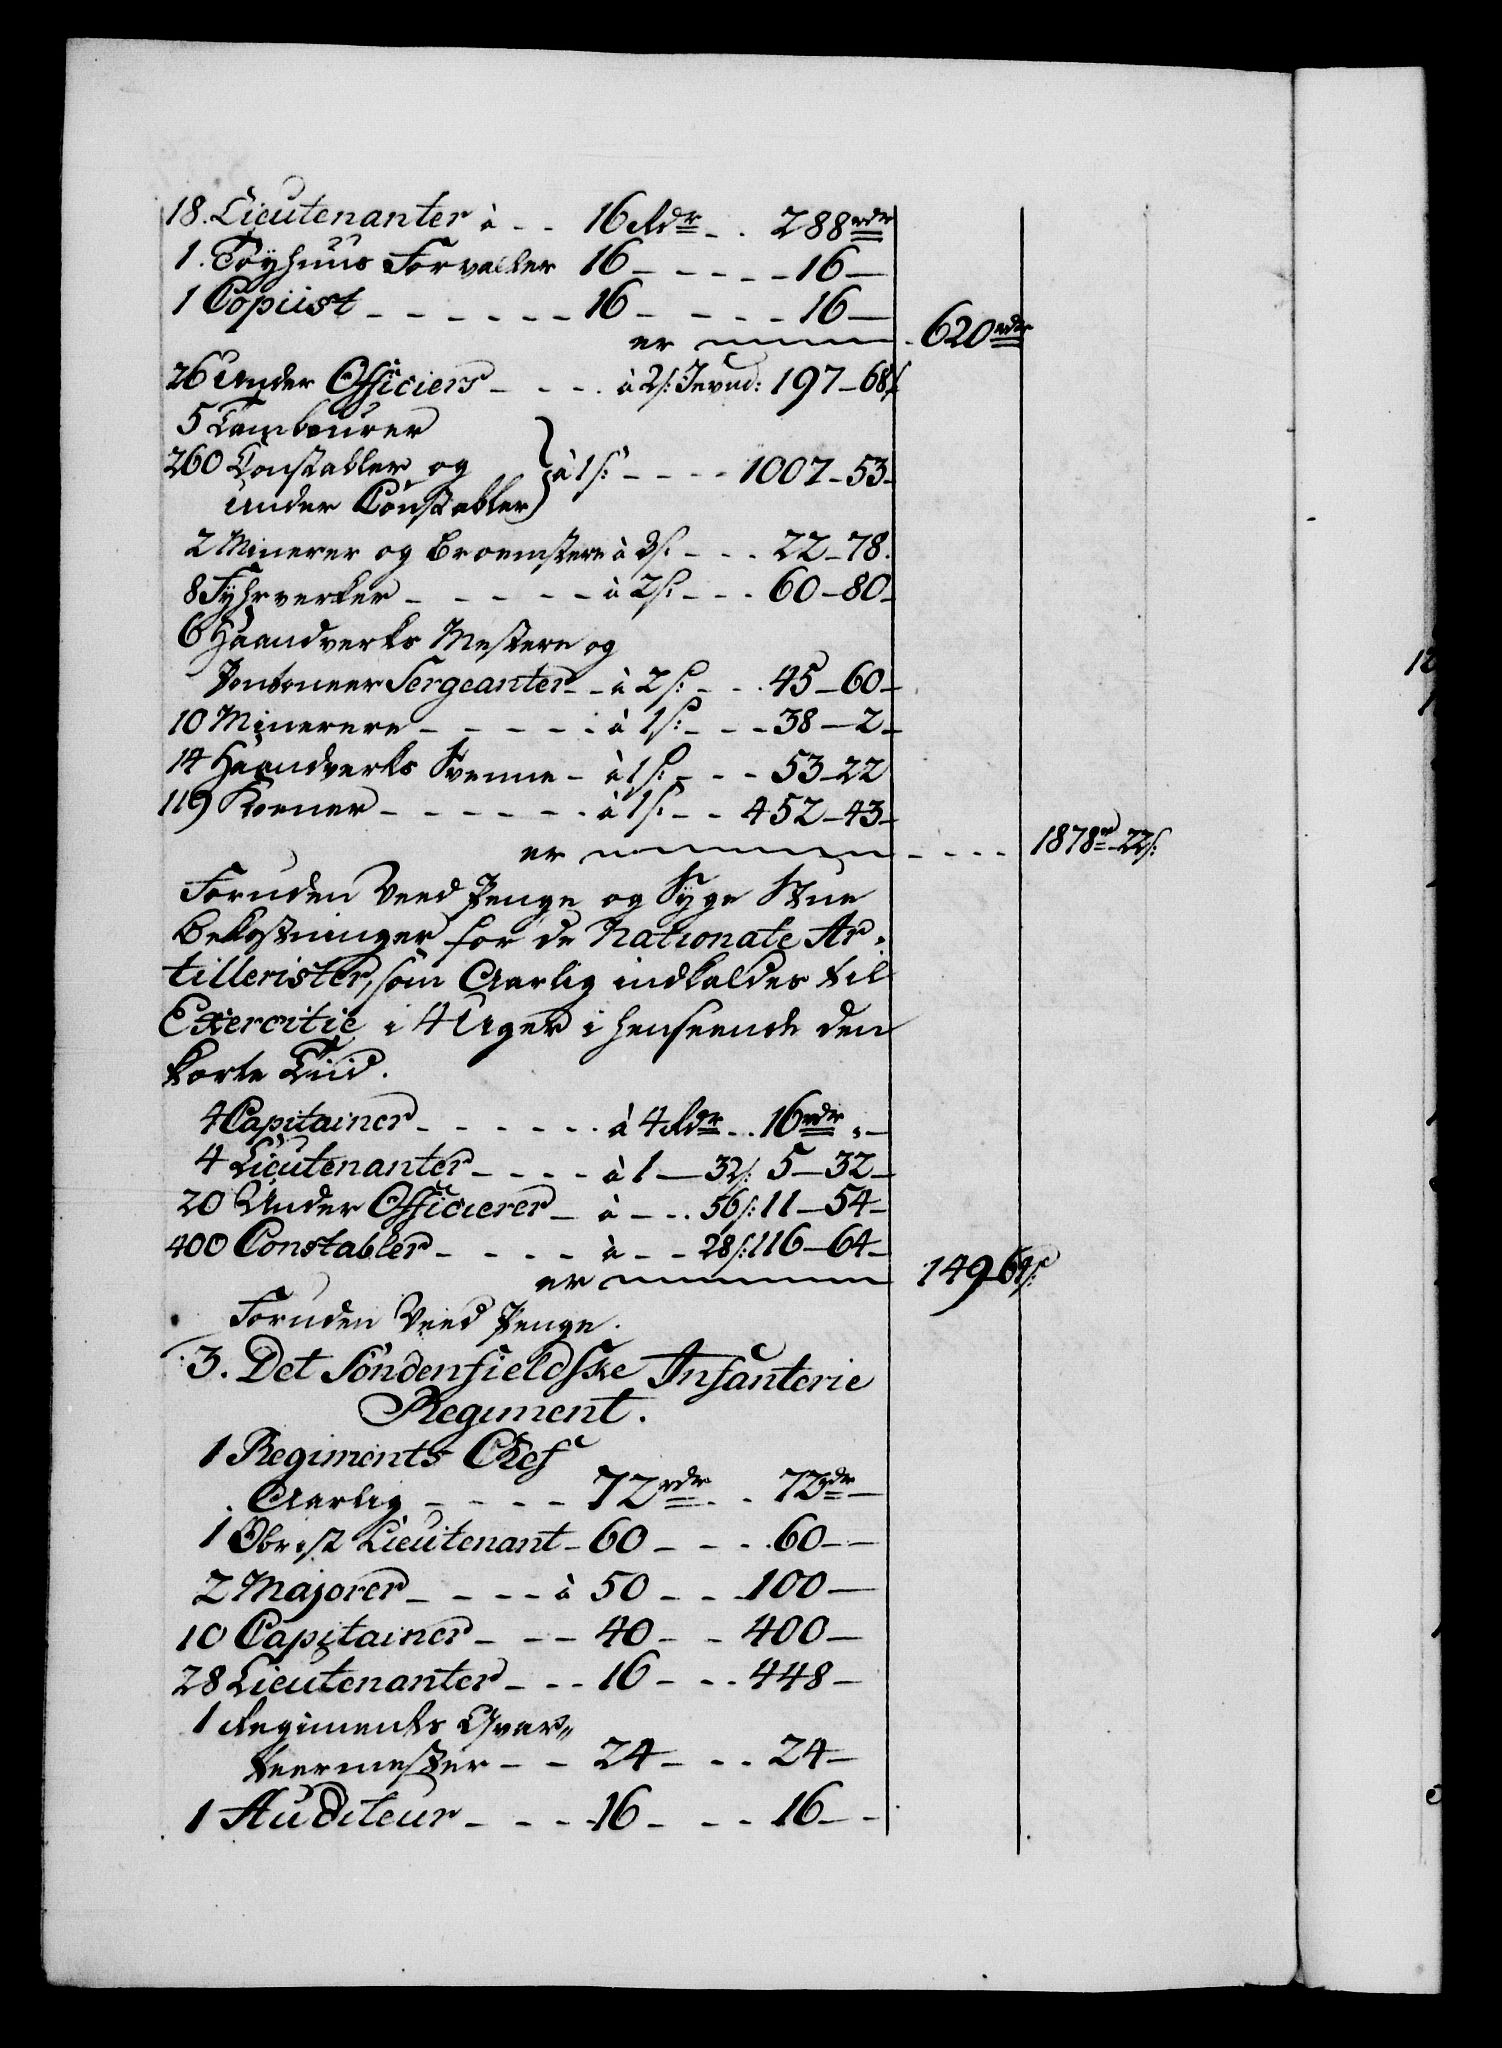 18. Lieutenanter à - - 16 Rdr - . 288 rdr
1. Töyhuus Forvalter 16 - - - - - 16 -
1 Copiist - - - - - - 16 - - - - - 16 -
er - 620 rdr
26 Under Officiers - - - . à 2 s: Jevnd: 197 - 68 s
5 Tambourer
260 Constabler og
under Constabler } à 1 s: - - - - 1007 - 53 -
2 Minerer og à 3 s: - - - 22 - 78.
8 Fyhrverker - - - - - à 2 s: - - - 60 - 80 -
6 Haandverks Mestere og
Pontoneer Sergeanter - - à 2 s: - - . 45 - 60 -
10 Minerere - - - - - . à 1 s: - - - 38 - 2 -
14 Haandverks Svenne - à 1 s: - - - 53 - 22
119 - - - - - - . à 1 s: - - 452 - 43 -
er - - - - 1878 r - 22 s:
Foruden Veed Penge og Syge Stue
Bekostninger for de Nationale Ar-
tillerister, som Aarlig indkaldes til
Exercitie i 4 Uger i henseende den
korte Tiid.
4 Capitainer - - - - - - à 4 Rdr - . 16 rdr „ -
4 Lieutenanter - - - - à 1 - 32 s: 5 - 32 -
20 Under Officierer - à - - . 56 s: 11 - 54 -
400 Constabler - - - - à - - 28 s: 116 - 64 -
er 149 - 6 s:
Foruden Veed Penge.
3. Det Söndenfieldske Infanterie
Regiment.
1 Regiments Chef
Aarlig - - - - 72 rdr - . 72 rdr -
1 Obrist Lieutenant - 60 - - - . 60 - -
2 Majorer - - - - à 50 - - - 100 -
10 Capitainer - - - 40 - - 400 -
28 Lieutenanter - - - 16 - - - 448 -
1 Regiments Qvar-
teermester - - 24 - - . 24 -
1 Auditeur - - - - 16 - - - 16 - -